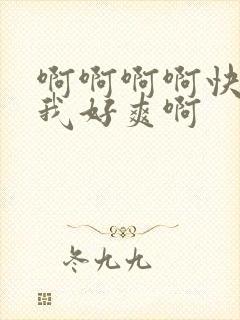 啊啊啊啊快
我好爽啊
冬九九